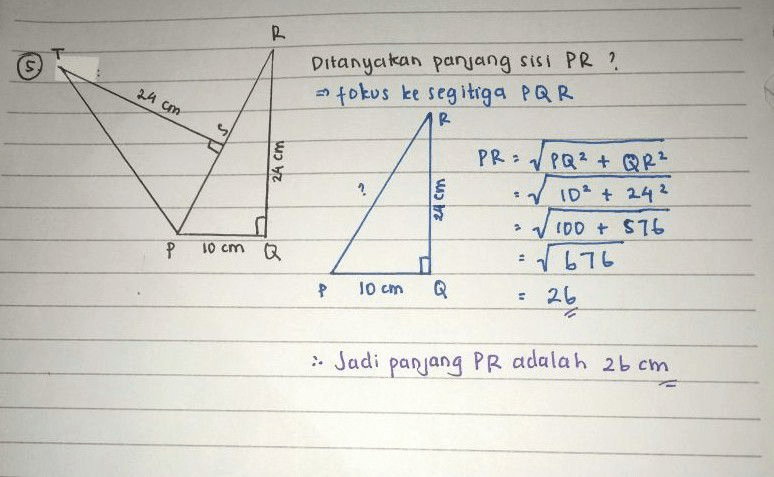 5.
T
R
24 cm
S
24 cm
P
10 cm
Q
Ditanyakan panjang sisi PR ?
⇒ fokus ke segitiga PQR
R
?
24 cm
P
10 cm
Q
PR = √PQ² + QR²
= √10² + 24²
= √100 + 576
= √676
= 26
∴ Jadi panjang PR adalah 26 cm